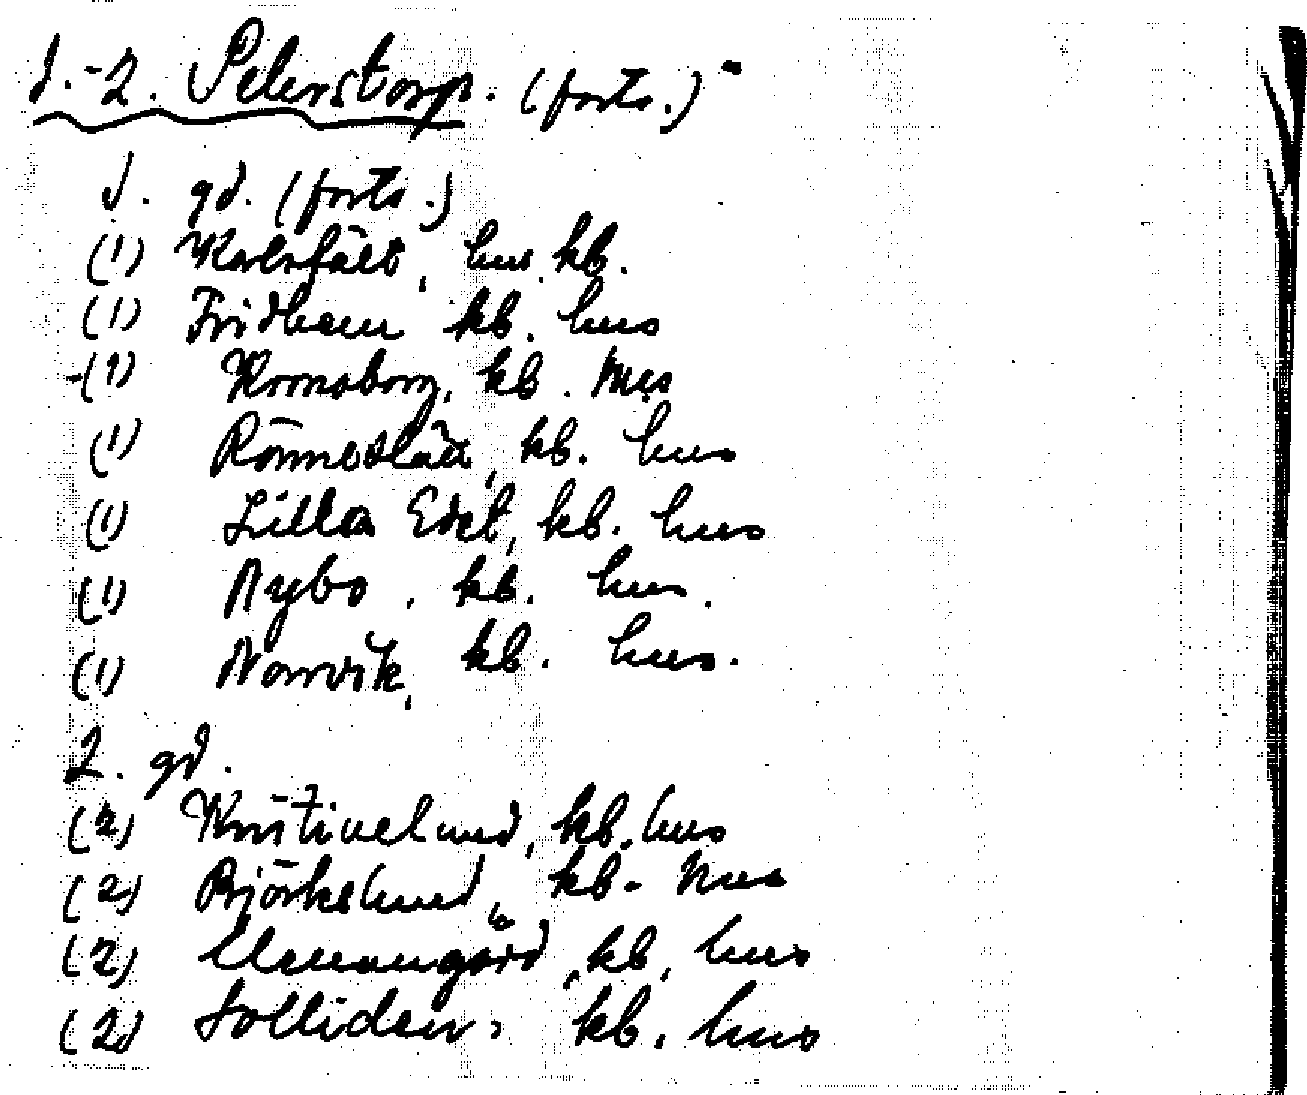 1.-2. Peterstorp. (forts.)
1. gd. (forts.)
(1) Karlsfält, hus, kb.
(1) Fridhem kb. hus
(1) Kronoborg, kb. hus
(1) Rönneslätt, kb. hus
(1) Lilla Edet, kb. hus
(1) Nybo, kb. hus.
(1) Narvik, kb. hus.
2. gd.
(2) Kristinelund, kb. hus
(2) Björkelund, kb. hus
(2) kb, hus
(2) Solliden, kb. hus